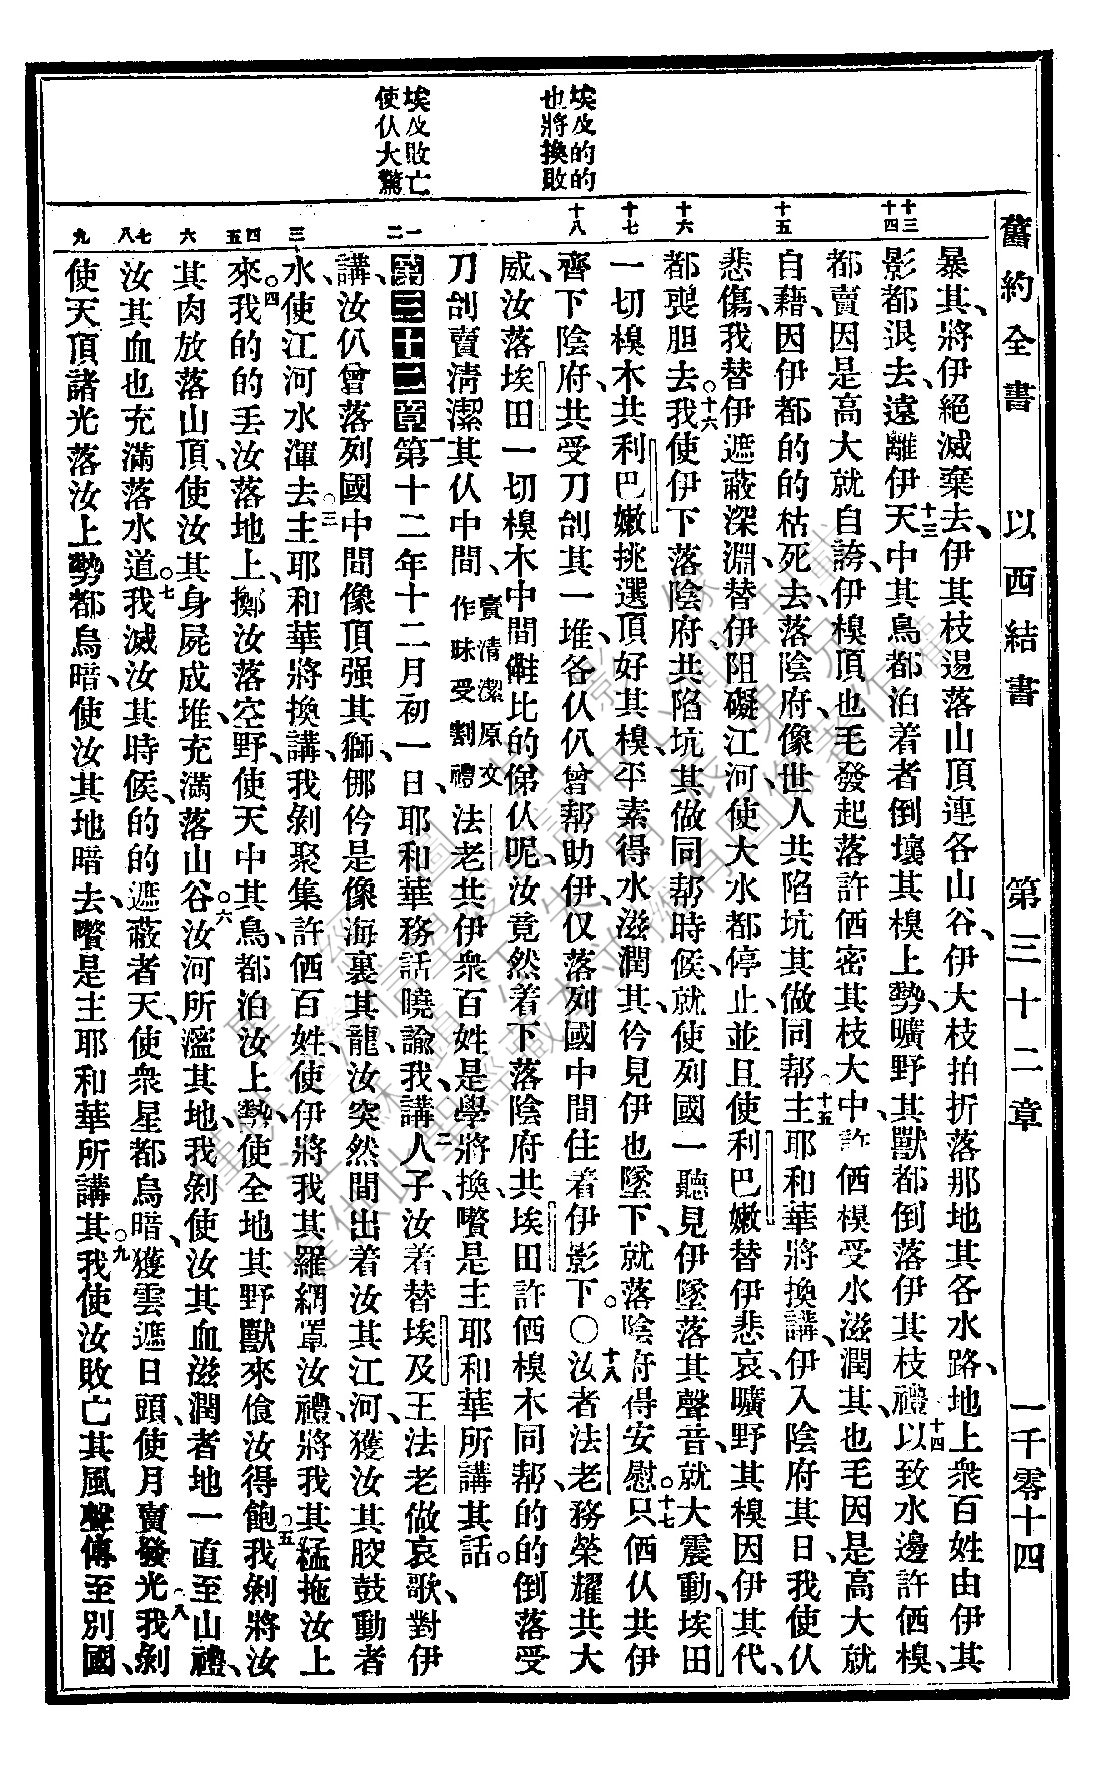 舊約全書 以西結書 第三十二章 一千零十四
埃及的的
也將換敗
埃及敗亡
使仈大驚
十三
十四
十五
十六
十七
十八
一
二
三
四
五
六
七
八
九
暴其、將伊絕滅棄去、伊其枝逿落山頂連各山谷、伊大枝拍折落那地其各水路、地上衆百姓由伊其
影都退去、遠離伊、十三天中其鳥都泊着者倒壞其模上勢、曠野其獸都倒落伊其枝禮、十四以致水邊許㑚模、
都賣因是高大就自誇、伊模頂也毛發起落許㑚密其枝大中、許㑚模受水滋潤其、也毛因是高大就
自藉、因伊都的的枯死去、落陰府、像世人共陷坑其做同帮、十五主耶和華將換講、伊入陰府其日、我使仈
悲傷、我替伊遮蔽深淵、替伊阻礙江河、使大水都停止、並且使利巴嫩替伊悲哀、曠野其模因伊其代、
都喪胆去。十六我使伊下落陰府共陷坑其做同帮時候、就使列國一聽見伊墜落其聲音、就大震動、埃田
一切模木共利巴嫩挑選頂好其模、平素得水滋潤其、伶見伊也墜下、就落陰府得安慰。十七只㑚仈共伊
齊下陰府、共受刀刣其一堆、各仈仈曾帮助伊、仅落列國中間住着伊影下。〇十八汝者法老、務榮耀共大
威、汝落埃田一切模木中間、毑比的俤仈呢、汝竟然着下落陰府、共埃田許㑚模木同帮、的的倒落受
刀刣賣清潔其仈中間、賣清潔原文作昧受割禮法老共伊衆百姓是學將換、嚽是主耶和華所講其話。
第三十二章 一第十二年十二月初一日、耶和華務話曉諭我講、二人子、汝着替埃及王法老做哀歌、對伊
講、汝仈曾落列國中間像頂强其獅、㑚伶是像海裏其龍、汝突然間出着汝其江河、獲汝其骹鼓動者
水、使江河水渾去。三主耶和華將換講、我剁聚集許㑚百姓、使伊將我其羅網罩汝禮、將我其猛拖汝上
來。四我的的丢汝落地上、擲汝落空野、使天中其鳥、都泊汝上勢、使全地其野獸來儉汝得飽。五我剁將汝
其肉放落山頂、使汝其身屍成堆、充滿落山谷。六汝河所瀊其地、我剁使汝其血滋潤者地一直至山禮、
汝其血也充滿落水道。七我滅汝其時候、的的遮蔽者天、使衆星都烏暗、獲雲遮日頭、使月賣發光。八我剁
使天頂諸光落汝上勢都烏暗、使汝其地暗去、嚽是主耶和華所講其。九我使汝敗亡其風聲傳至別國、